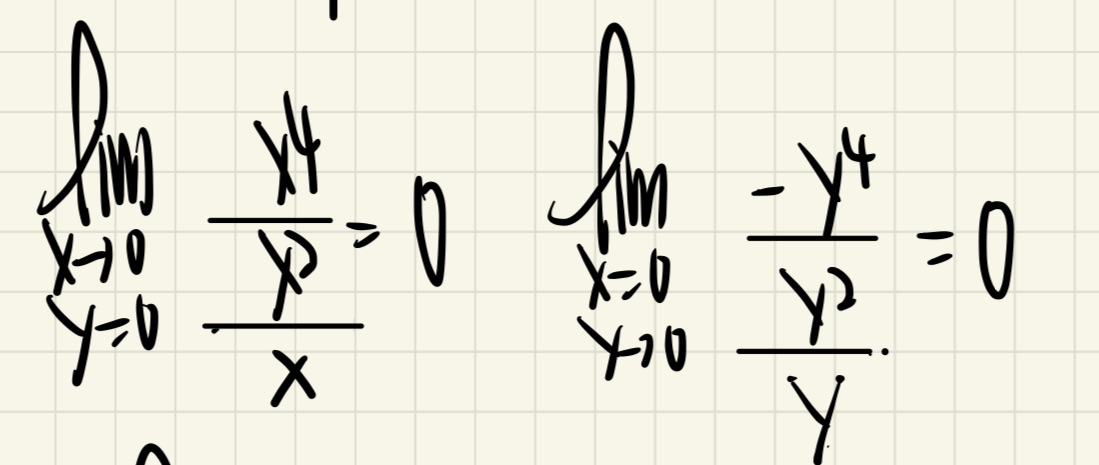 \lim_{\substack{x \to 0 \\ y = 0}} \frac{\frac{y^4}{y^2}}{x} = 0 \quad \lim_{\substack{x = 0 \\ y \to 0}} \frac{\frac{-y^4}{y^2}}{y} = 0